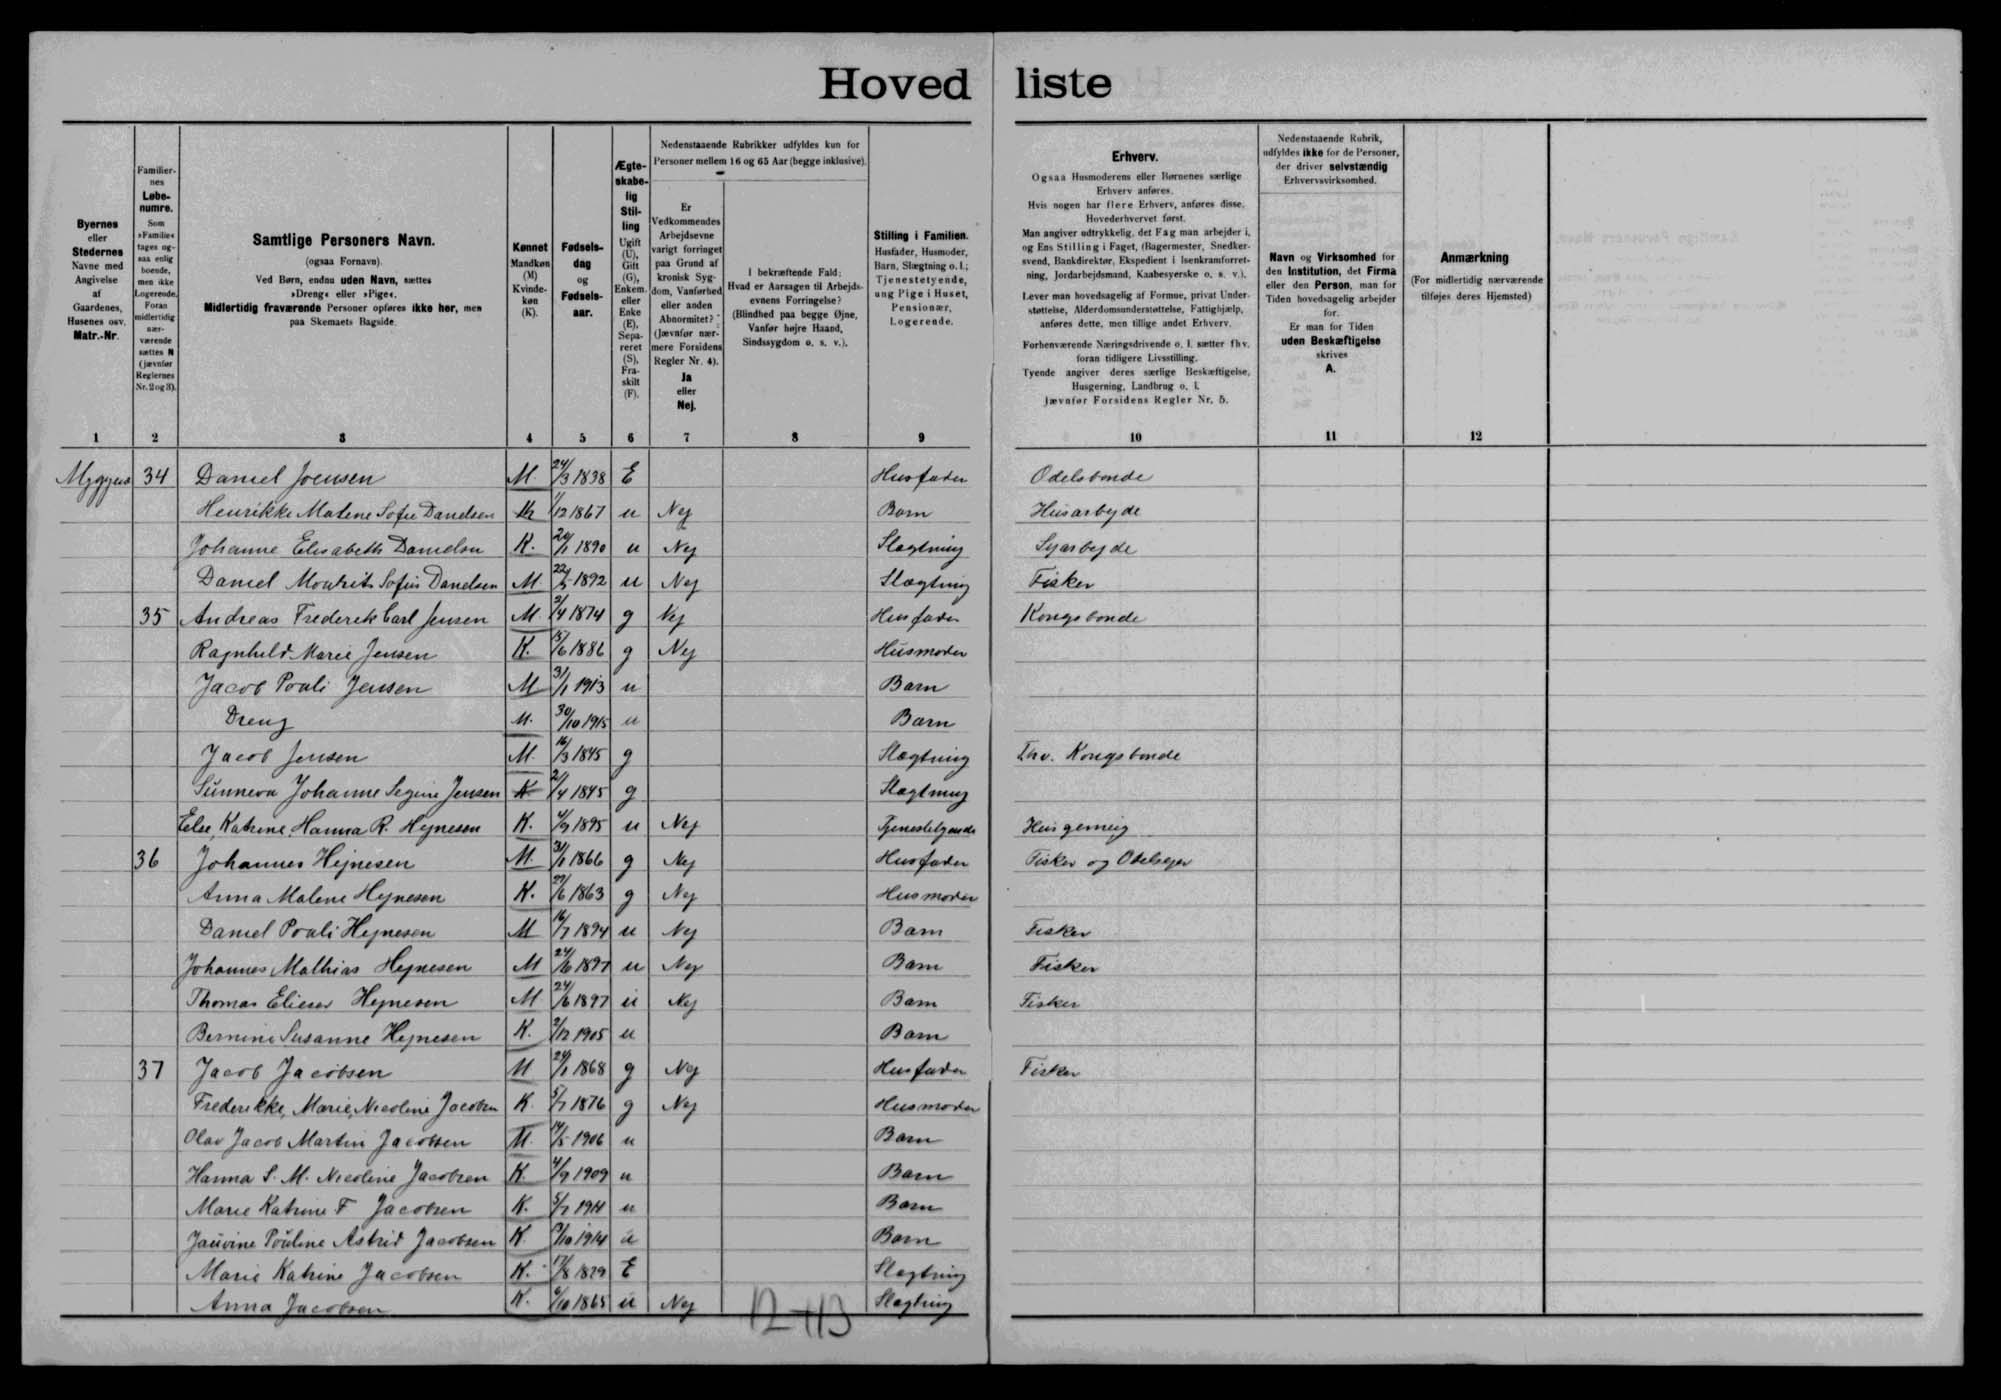 Hovedliste
Byernes eller Stedernes Navne med Angivelse af Gaardenes, Husenes osv. Matr.-Nr.
Familiernes Løbenumre. Som »Familie« tages ogsaa enlig boende, men ikke Logerende. Foran midlertidig nærværende sættes N (jævnfør Reglernes Nr. 2 og 3).
Samtlige Personers Navn.
(ogsaa Fornavn).
Ved Børn, endnu uden Navn, sættes »Dreng« eller »Pige«.
Midlertidig fraværende Personer opføres ikke her, men paa Skemaets Bagside.
Kønnet Mandkøn (M) Kvindekøn (K).
Fødselsdag og Fødselsaar.
Ægteskabelig Stilling Ugift (U), Gift (G), Enkem. eller Enke (E), Separeret (S), Fraskilt (F).
Nedenstaaende Rubrikker udfyldes kun for Personer mellem 16 og 65 Aar (begge inklusive).
Er Vedkommendes Arbejdsevne varigt forringet paa Grund af kronisk Sygdom, Vanførhed eller anden Abnormitet? (Jævnfør nærmere Forsidens Regler Nr. 4). Ja eller Nej.
I bekræftende Fald: Hvad er Aarsagen til Arbejdsevnens Forringelse? (Blindhed paa begge Øjne, Vanfør højre Haand, Sindssygdom o. s. v.).
Stilling i Familien. Husfader, Husmoder, Barn, Slægtning o. l.; Tjenestetyende, ung Pige i Huset, Pensionær, Logerende.
Erhverv.
Ogsaa Husmoderens eller Børnenes særlige Erhverv anføres.
Hvis nogen har flere Erhverv, anføres disse, Hovederhvervet først.
Man angiver udtrykkelig, det Fag man arbejder i, og Ens Stilling i Faget, (Bagermester, Snedkersvend, Bankdirektør, Ekspedient i Isenkramforretning, Jordarbejdsmand, Kaabesyerske o. s. v.).
Lever man hovedsagelig af Formue, privat Understøttelse, Alderdomsunderstøttelse, Fattighjælp, anføres dette, men tillige andet Erhverv.
Forhenværende Næringsdrivende o. l. sætter fhv. foran tidligere Livsstilling.
Tyende angiver deres særlige Beskæftigelse, Husgerning, Landbrug o. l.
Jævnfør Forsidens Regler Nr. 5.
Nedenstaaende Rubrik, udfyldes ikke for de Personer, der driver selvstændig Erhvervsvirksomhed.
Navn og Virksomhed for den Institution, det Firma eller den Person, man for Tiden hovedsagelig arbejder for.
Er man for Tiden uden Beskæftigelse skrives A.
Anmærkning
(For midlertidig nærværende tilføjes deres Hjemsted)
1 2 3 4 5 6 7 8 9 10 11 12
Myggenæs 34 Daniel Joensen M. 24/3 1838 E Husfader Odelsbonde
Henrikke Malene Sofie Danielsen K 1/12 1867 u Nej Barn Husarbejde
Johanne Elisabeth Danielsen K. 20/1 1890 u Nej Slægtning Syarbejde
Daniel Mouhrits Sofus Danielsen M 22/5 1892 u Nej Slægtning Fisker
35 Andreas Frederik Carl Jensen M. 2/4 1874 g Nej Husfader Kongsbonde
Ragnhild Marie Jensen K. 15/6 1886 g Nej Husmoder
Jacob Pouli Jensen M 31/1 1913 u Barn
Dreng M. 30/10 1915 u Barn
Jacob Jensen M. 16/3 1845 g Slægtning Fhv. Kongsbonde
Sunneva Johanne Segine Jensen K 2/4 1845 g Slægtning
Else, Katrine, Hanna R. Hejnesen K. 4/9 1895 u Nej Tjenestetyende Husgerning
36 Johannes Hejnesen M. 31/1 1866 g Nej Husfader Fisker og Odelsejer
Anna Malene Hejnesen K. 27/6 1863 g Nej Husmoder
Daniel Pouli Hejnesen M 16/7 1894 u Nej Barn Fisker
Johannes Mathias Hejnesen M 24/6 1897 u Nej Barn Fisker
Thomas Elieser Hejnesen M 24/6 1897 u Nej Barn Fisker
Bernine Susanne Hejnesen K. 2/12 1905 u Barn
37 Jacob Jacobsen M 24/1 1868 g Nej Husfader Fisker
Frederikke, Marie, Nicoline Jacobsen K. 5/7 1876 g Nej Husmoder
Olav Jacob Martin Jacobsen M. 14/5 1906 u Barn
Hanna S. M. Nicoline Jacobsen K. 4/9 1909 u Barn
Marie Katrine F Jacobsen K. 5/7 1911 u Barn
Pouline Astrid Jacobsen K. 9/10 1914 u Barn
Marie Katrine Jacobsen K. 17/8 1829 E Slægtning
Anna Jacobsen K. 6/10 1865 u Nej Slægtning
12+13